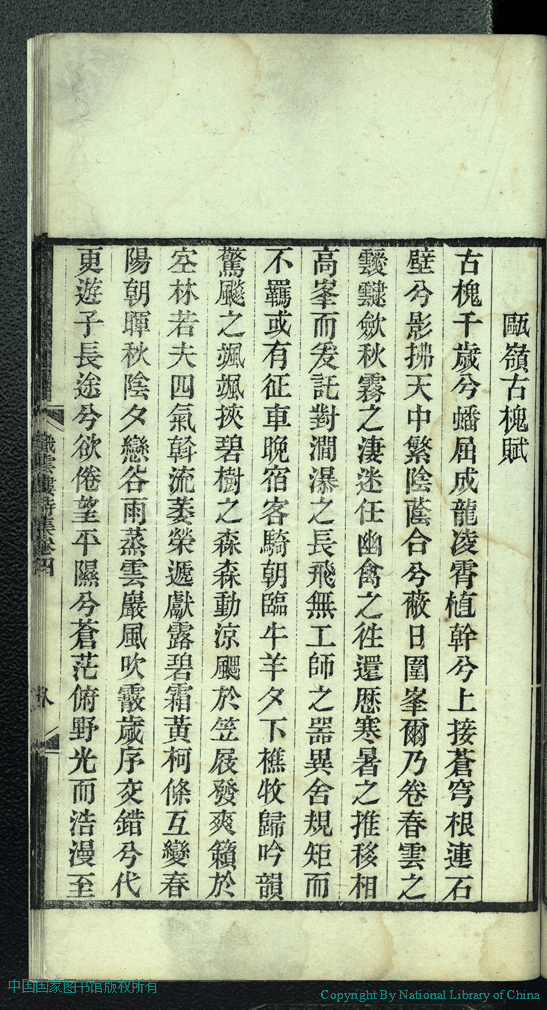 甌嶺古槐賦
古槐千歲兮蟠屈成龍凌霄植幹兮上接蒼穹根連石
壁兮影拂天中繁陰蔭合兮蔽日圍峯爾乃卷春雲之
靉靆斂秋霧之淒迷任幽禽之往還歷寒暑之推移相
高峯而爰託對澗瀑之長飛無工師之器異舍規矩而
不羈或有征車晚宿客騎朝臨牛羊夕下樵牧歸吟韻
驚颷之颯颯挾碧樹之森森動涼颸於笠屐發爽籟於
空林若夫四氣斡流萎榮遞獻露碧霜黃柯條互變春
陽朝暉秋陰夕戀谷雨蒸雲巖風吹霰歲序交錯兮代
更遊子長途兮欲倦望平隰兮蒼茫俯野光而浩漫至
織雲樓詩集卷四
八
中国国家图书馆版权所有
Copyright By National Library of China